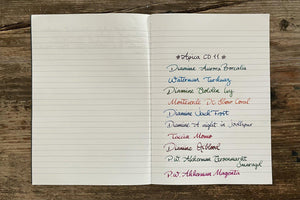 *Apica CD 11*
Diamine Aurora Borealis
Waterman Turkuaz
Diamine Golden Ivy
Monteverde DC Slow Coral
Diamine Jack Frost
Diamine A night in Jodhpur
Taccia Momo
Diamine Oxblood
P.W. Akkerman Groenmarkt
Smaragd
P.W. Akkerman Magenta